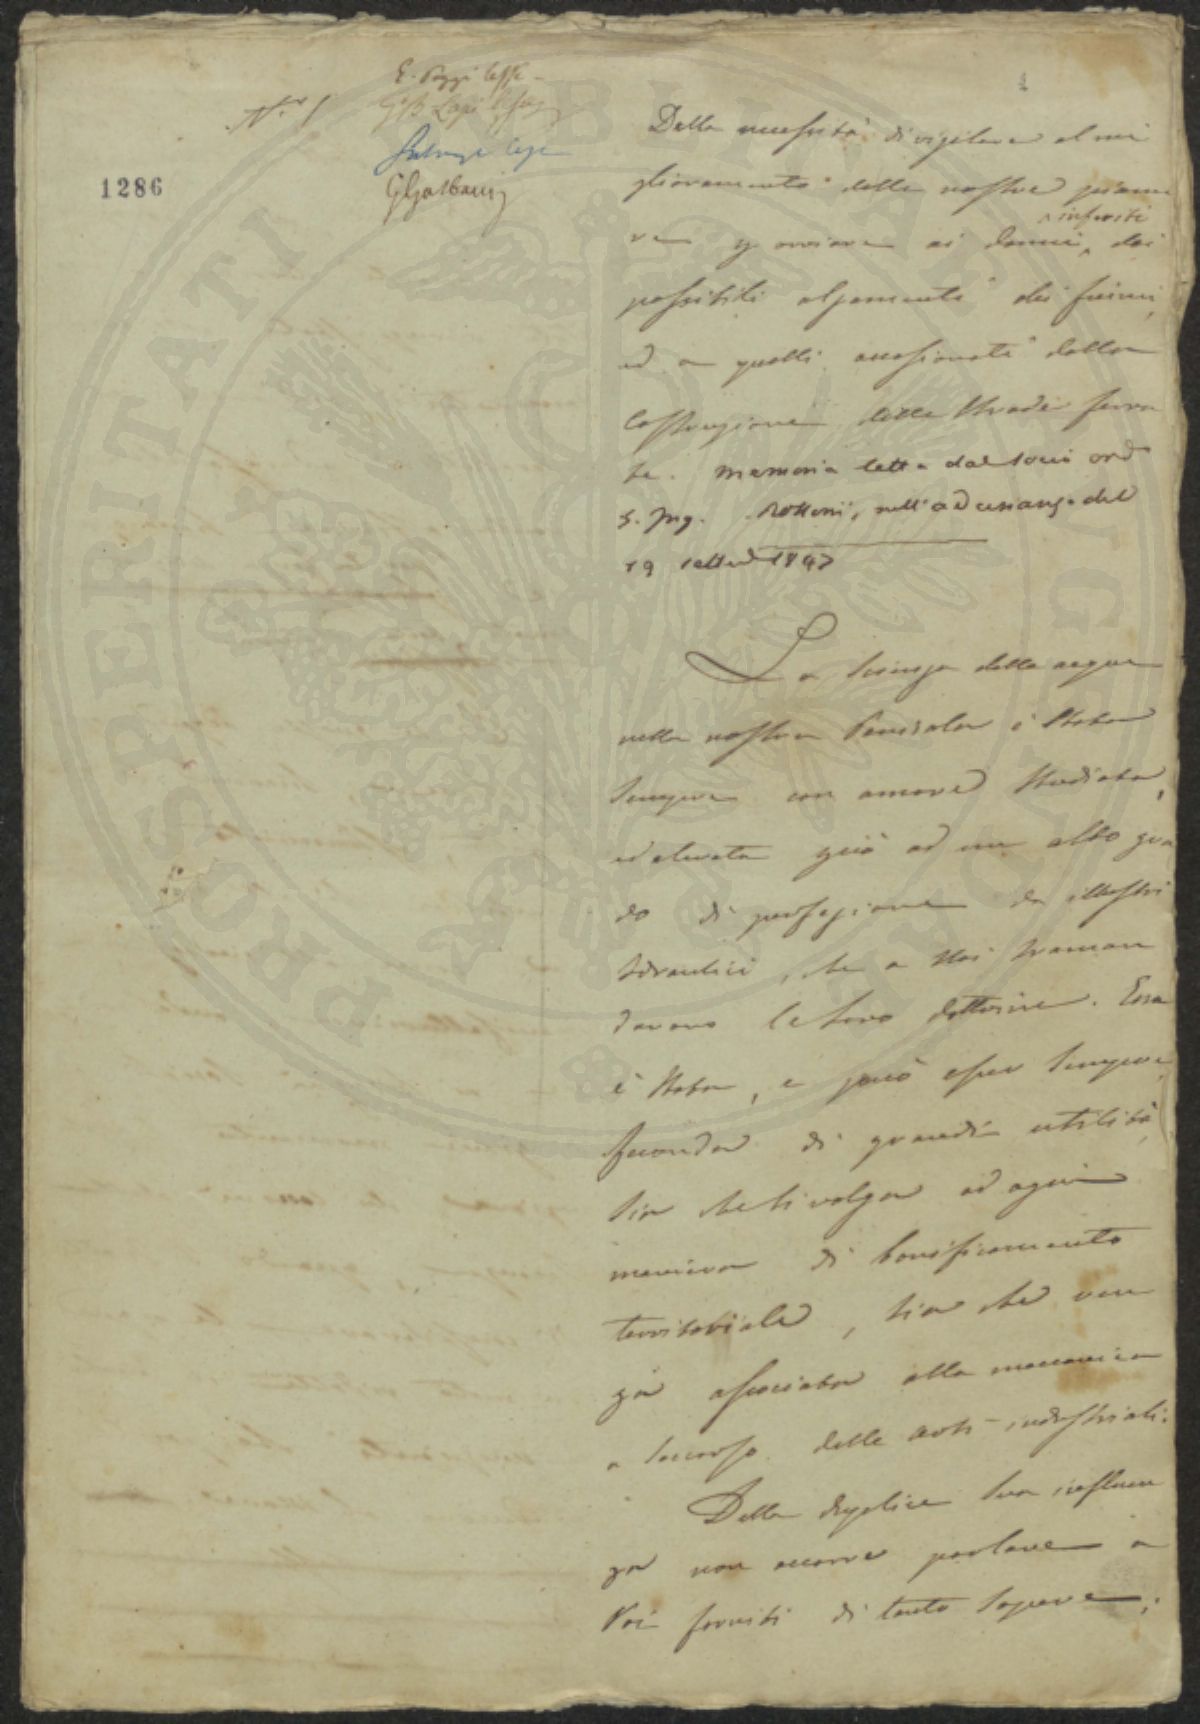 N.° 1
E. Poggi
G. B. Lapi
1286
Della necessità di vigilare al mi
glioramento delle nostre pianu
re
infesti
ovviare ai danni, dei
possibili alzamenti dei fiumi,
ed a quelli occasionati dalla
Costruzione delle Strade ferra
te. Memoria letta dal Socio ord
S. Ing. nell'adunanza del
19 Settemb 1847
La Scienza delle acque
nella nostra Penisola è Stata
Sempre con amore Studiata,
ed elevata già ad un alto gra
do di perfezione da illustri
Idraulici, che a Noi traman
darono le loro dottrine. Essa
è Stata, e può esser Sempre
feconda di grandi utilità,
Sia che si volga ad ogni
maniera di bonificamento
territoriale, Sia che ven
ga associata alla meccanica
a Soccorso delle arti industriali.
Della duplice Sua influen
za non occorre parlare a
Voi forniti di tanto Sapere;
PROSPERITATI PUBLICAE AUGENDAE